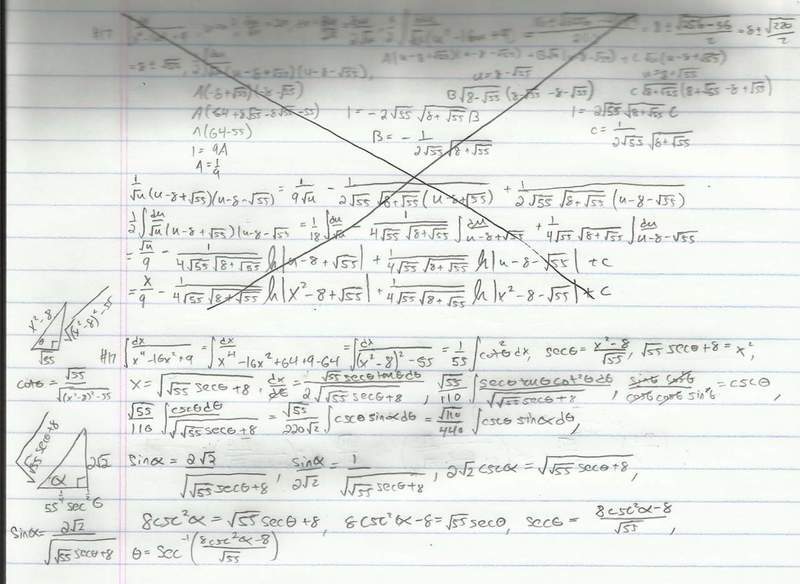 #17
= 8 ± √55
A(-8+√55)(-8-√55)
A(64+8√55-8√55-55)
A(64-55)
1 = 9A
A = 1/9
u = 8-√55
B√(8-√55) (8-√55-8-√55)
1 = -2√55 √(8+√55) B
B = - 1/(2√55 √(8+√55))
u = 8+√55
C√(8+√55) (8+√55-8+√55)
1 = 2√55 √(8+√55) C
C = 1/(2√55 √(8+√55))
1/(√u(u-8+√55)(u-8-√55)) = 1/(9√u) - 1/(2√55 √(8+√55) (u-8+√55)) + 1/(2√55 √(8+√55) (u-8-√55))
1/2 ∫ du/(√u(u-8+√55)(u-8-√55)) = 1/18 ∫ du/√u - 1/(4√55 √(8+√55)) ∫ du/(u-8+√55) + 1/(4√55 √(8+√55)) ∫ du/(u-8-√55)
= √u/9 - 1/(4√55 √(8+√55)) ln|u-8+√55| + 1/(4√55 √(8+√55)) ln|u-8-√55| + c
= x/9 - 1/(4√55 √(8+√55)) ln|x²-8+√55| + 1/(4√55 √(8+√55)) ln|x²-8-√55| + c
x²-8
√((x²-8)²-55)
θ
√55
cotθ = √55/√((x²-8)²-55)
#17 ∫ dx/(x⁴-16x²+9) = ∫ dx/(x⁴-16x²+64+9-64) = ∫ dx/((x²-8)²-55) = 1/55 ∫ cot²θ dx, secθ = (x²-8)/√55, √55 secθ+8 = x²,
x = √(√55 secθ+8), dx/dθ = √55 secθ tanθ/(2√(√55 secθ+8)), √55/110 ∫ secθ tanθ cot²θ dθ/√(√55 secθ+8), sinθ cos²θ/(cosθ cosθ sin²θ) = cscθ
√55/110 ∫ cscθ dθ/√(√55 secθ+8) = √55/(220√2) ∫ cscθ sinα dθ = √110/440 ∫ cscθ sinα dθ,
√(√55 secθ+8)
2√2
α
55^(1/4) sec^(1/2) θ
sinα = 2√2/√(√55 secθ+8)
sinα = 2√2/√(√55 secθ+8), sinα/(2√2) = 1/√(√55 secθ+8), 2√2 cscα = √(√55 secθ+8),
8csc²α = √55 secθ+8, 8csc²α-8 = √55 secθ, secθ = (8csc²α-8)/√55,
θ = sec⁻¹((8csc²α-8)/√55)